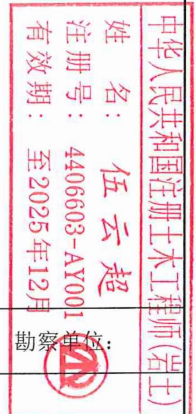 中华人民共和国注册土木工程师(岩土)
姓 名: 伍云超
注册号: 4406603-AY001
有效期: 至2025年12月
勘察单位: